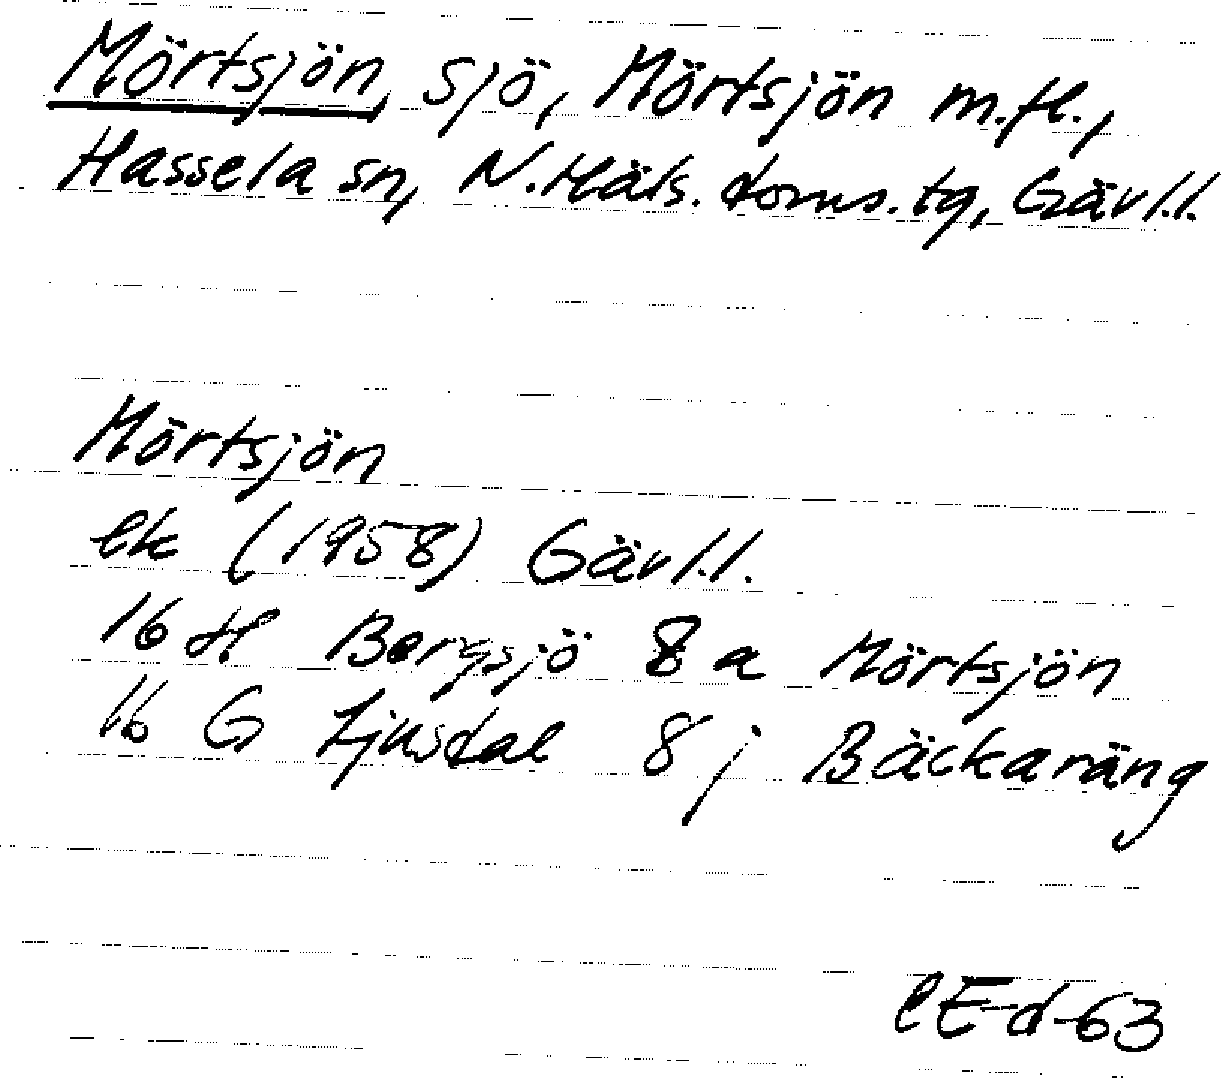 Mörtsjön, sjö, Mörtsjön m.fl.,
Hassela sn, N.Häls. doms. tg, Gävl.l.
Mörtsjön
ek (1958) Gävl.l.
16 H Bergsjö 8 a Mörtsjön
16 G Ljusdal 8 j Bäckaräng
CE-d-63